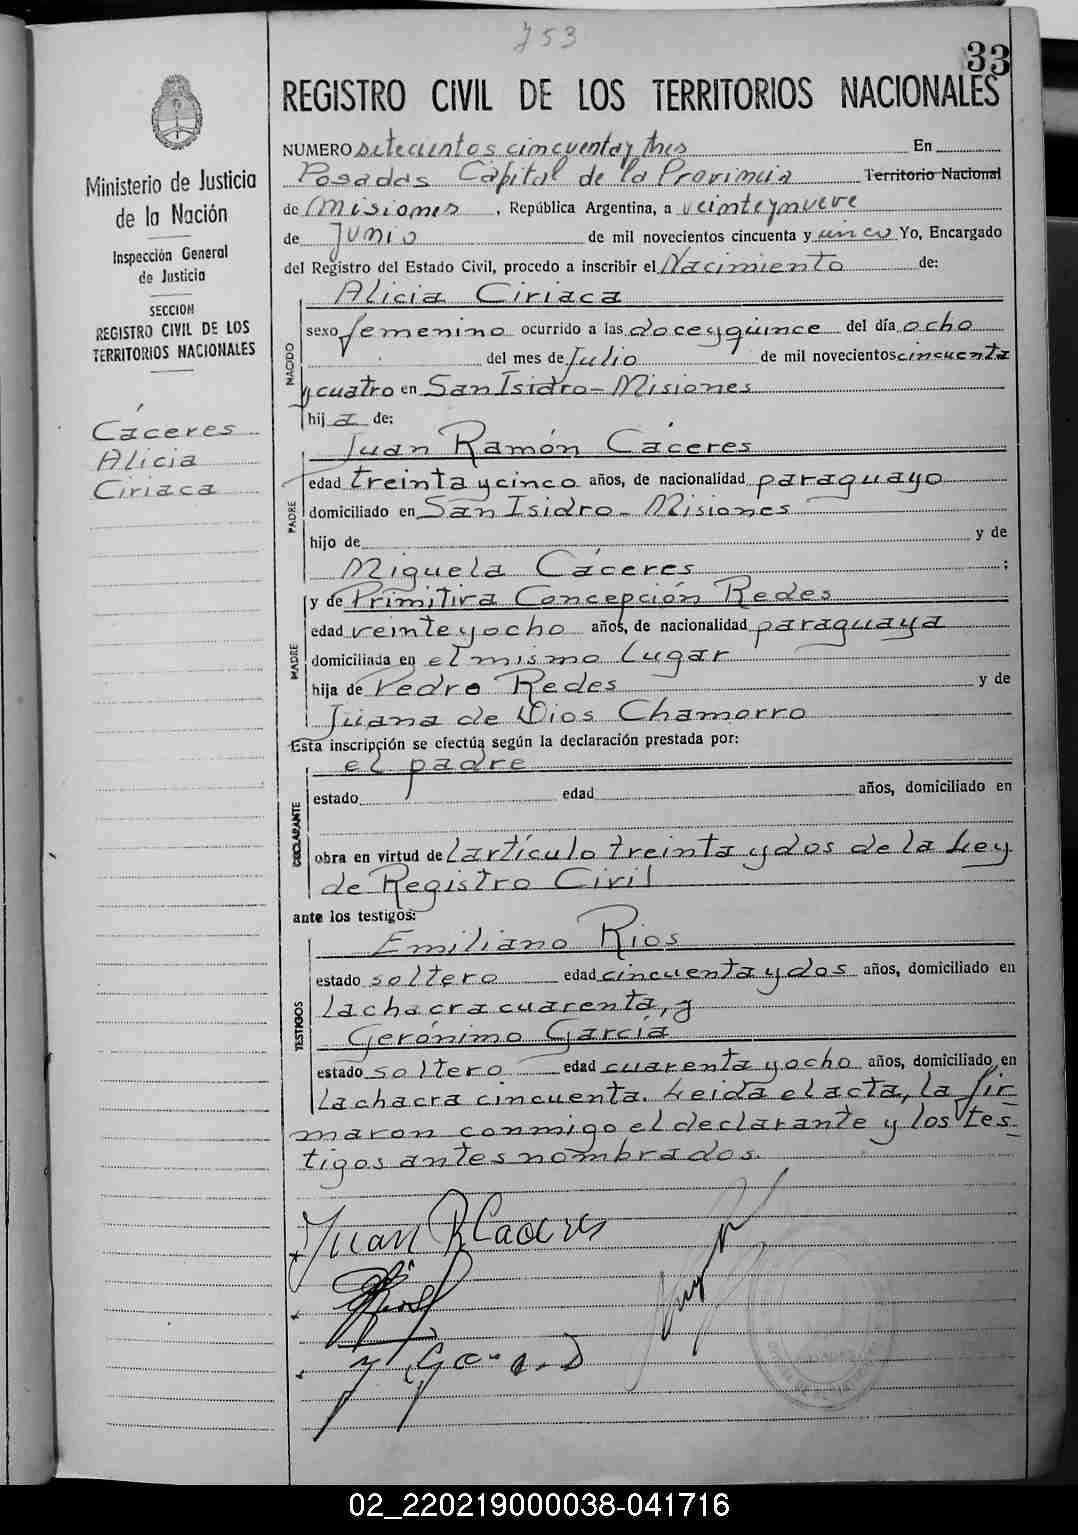 753
33
REGISTRO CIVIL DE LOS TERRITORIOS NACIONALES
Ministerio de Justicia
de la Nación
Inspección General
de Justicia
SECCION
REGISTRO CIVIL DE LOS
TERRITORIOS NACIONALES
Cáceres
Alicia
Ciriaca
NUMERO setecientos cincuenta y tres En
Posadas Capital de la Provincia Territorio Nacional
de Misiones, República Argentina, a veinte y nueve
de Junio de mil novecientos cincuenta y cinco Yo, Encargado
del Registro del Estado Civil, procedo a inscribir el Nacimiento de:
Alicia Ciriaca
NACIDO
sexo femenino ocurrido a las doce y quince del día ocho
del mes de Julio de mil novecientos cincuenta
y cuatro en San Isidro - Misiones
hija de:
Juan Ramón Cáceres
PADRE
edad treinta y cinco años, de nacionalidad paraguayo
domiciliado en San Isidro - Misiones
hijo de y de
Miguela Cáceres ;
y de Primitiva Concepción Redes
MADRE
edad veinte y ocho años, de nacionalidad paraguaya
domiciliada en el mismo lugar
hija de Pedro Redes y de
Juana de Dios Chamorro
Esta inscripción se efectúa según la declaración prestada por:
el padre
DECLARANTE
estado edad años, domiciliado en
obra en virtud del artículo treinta y dos de la Ley
de Registro Civil
ante los testigos:
Emiliano Rios
TESTIGOS
estado soltero edad cincuenta y dos años, domiciliado en
la chacra cuarenta, y
Gerónimo García
estado soltero edad cuarenta y ocho años, domiciliado en
la chacra cincuenta. Leida el acta, la fir-
maron conmigo el declarante y los tes-
tigos antes nombrados.
Juan R Caceres
02_220219000038-041716